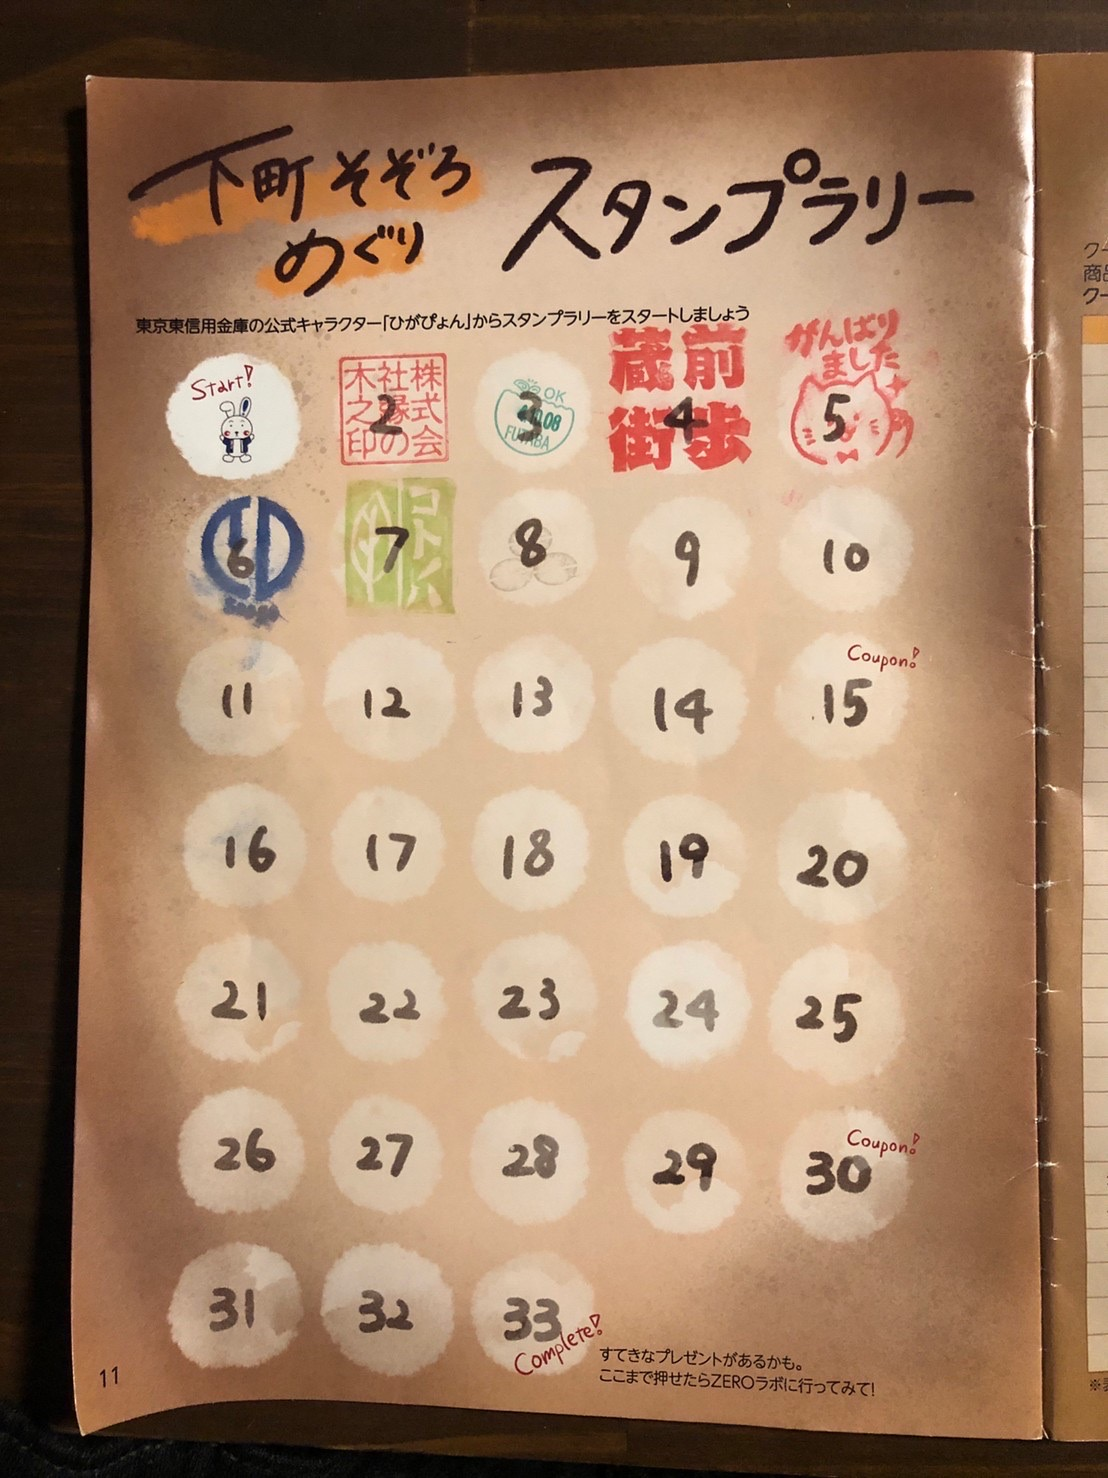 下町そぞろ
めぐり
スタンプラリー
東京東信用金庫の公式キャラクター「ひがぴょん」からスタンプラリーをスタートしましょう
Start!
株式会
社縁の
木之印
2
OK
10.08
FUTABA
3
蔵前
街歩
4
がんばり
ました
5
6
7
コトノハ
8
9
10
11
12
13
14
Coupon!
15
16
17
18
19
20
21
22
23
24
25
26
27
28
29
Coupon!
30
31
32
33
Complete!
すてきなプレゼントがあるかも。
ここまで押せたらZEROラボに行ってみて!
11
クー
商品
クー